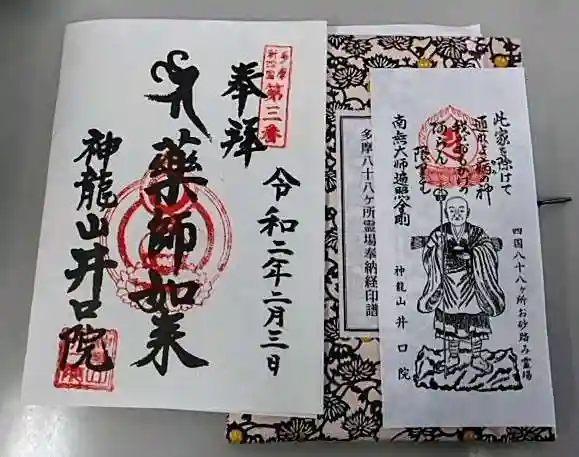 多摩
新四国
第三番
奉拝
令和二年二月三日
薬師如来
神龍山井口院
多摩八十八ヶ所霊場奉納経印譜
此家を除けて
通れよ
神
我がおもひの
あらん
限りは
南無大師遍照金剛
神龍山 井口院
四国八十八ヶ所お砂踏み霊場